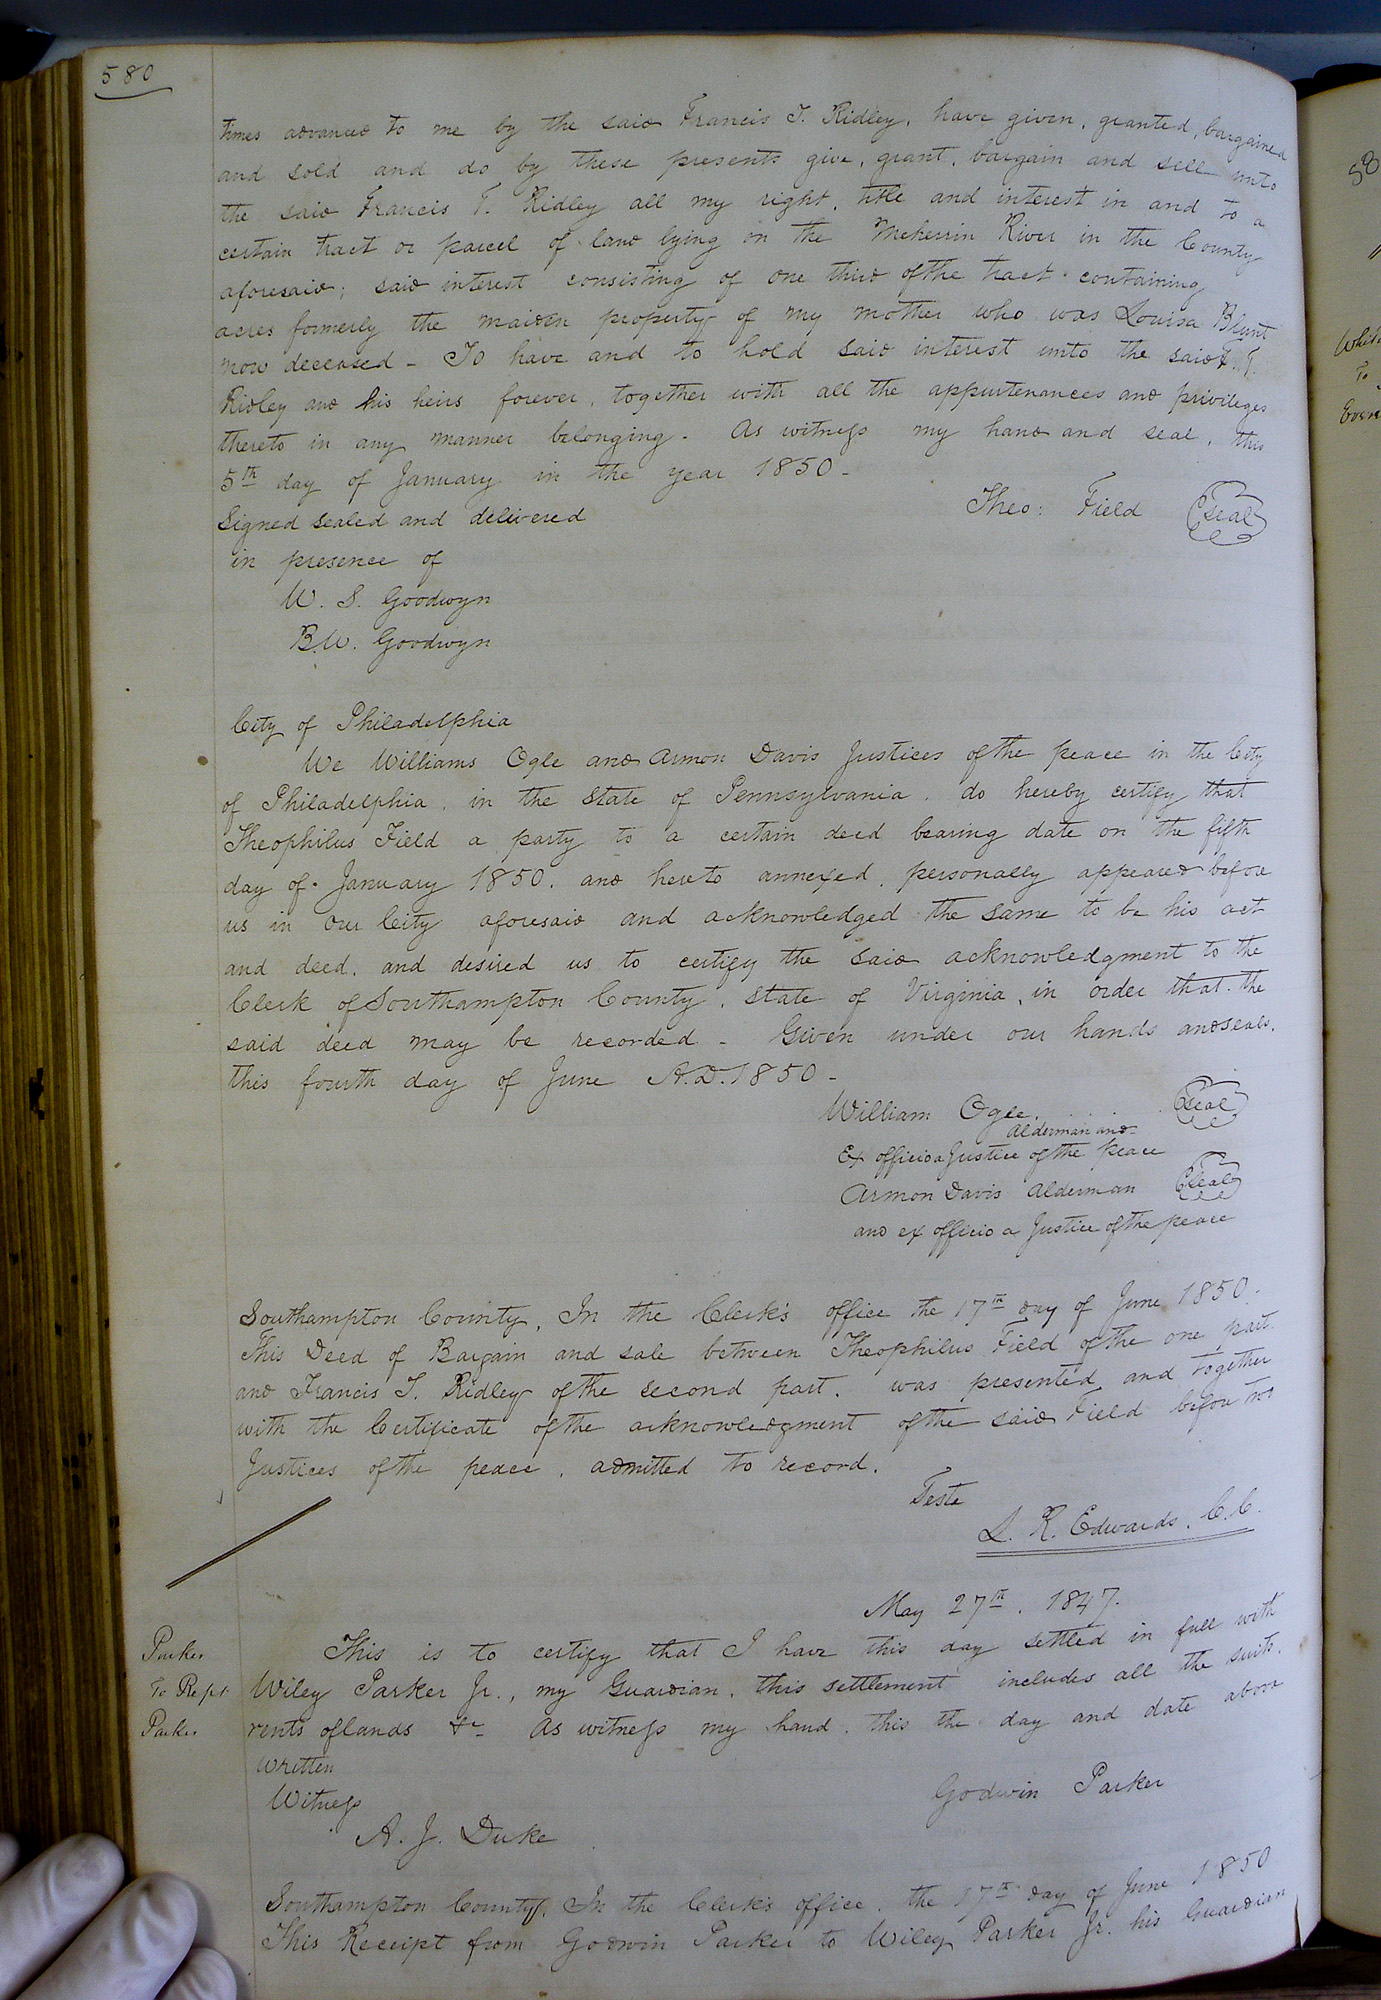 580
times advanced to me by the said Francis T. Ridley, have given, granted, bargained
and sold and do by these presents give, grant, bargain and sell unto
the said Francis T. Ridley all my right, title and interest in and to a
certain tract or parcel of land lying on the Meherrin River in the County
aforesaid; said interest consisting of one third of the tract containing
acres formerly the maiden property of my mother who was Louisa Blunt
now deceased - To have and to hold said interest unto the said F. T.
Ridley and his heirs forever, together with all the appurtenances and privileges
thereto in any manner belonging. As witness my hand and seal, this
5th day of January in the year 1850 -
Signed sealed and delivered
Theo: Field Seal
in presence of
W. S. Goodwyn
B. W. Goodwyn
City of Philadelphia
We Williams Ogle and Armon Davis Justices of the peace in the City
of Philadelphia, in the State of Pennsylvania, do hereby certify that
Theophilus Field a party to a certain deed bearing date on the fifth
day of January 1850, and hereto annexed, personally appeared before
us in our City aforesaid and acknowledged the same to be his act
and deed, and desired us to certify the said acknowledgment to the
Clerk of Southampton County, State of Virginia, in order that the
said deed may be recorded - Given under our hands and seals,
this fourth day of June A.D. 1850 -
William Ogle, Seal
Alderman and
Ex officio a Justice of the peace
Armon Davis Alderman Seal
and ex officio a Justice of the peace
Southampton County, In the Clerk's office the 17th day of June 1850.
This Deed of Bargain and sale between Theophilus Field of the one part
and Francis T. Ridley of the second part, was presented and together
with the Certificate of the acknowledgment of the said Field before two
Justices of the peace, admitted to record.
Teste
L. R. Edwards, C.C.
May 27th, 1847.
Parker
To Rept
Parker
This is to certify that I have this day settled in full with
Wiley Parker Jr., my Guardian, this settlement includes all the suits,
rents of lands &c As witness my hand, this the day and date above
written
Witness
Godwin Parker
A. J. Duke
Southampton County, In the Clerk's office, the 17th day of June 1850
This Receipt from Godwin Parker to Wiley Parker Jr. his Guardian
58
To